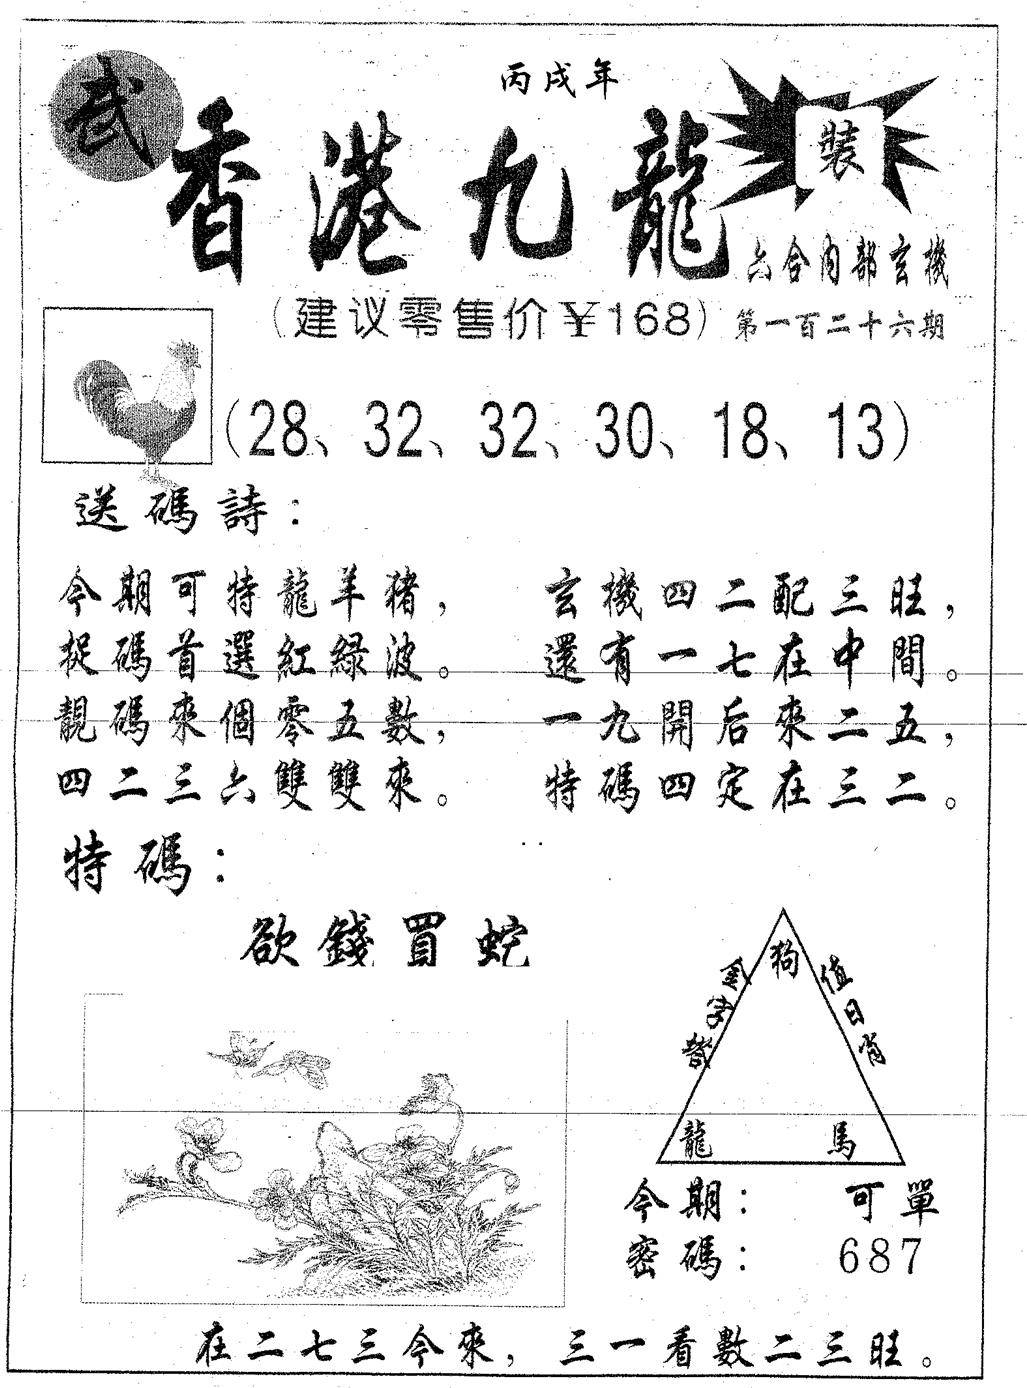 丙戌年
武
香港九龍
裝
六合內部玄機
(建议零售价￥168)
第一百二十六期
(28、32、32、30、18、13)
送碼詩：
今期可特龍羊豬，
捉碼首選紅綠波。
靚碼來個零五數，
四二三六雙雙來。
玄機四二配三旺，
還有一七在中間。
一九開后來二五，
特碼四定在三二。
特碼：
欲錢買蛇
金字塔
狗
值日肖
龍
馬
今期：可單
密碼：687
在二七三今來，三一看數二三旺。